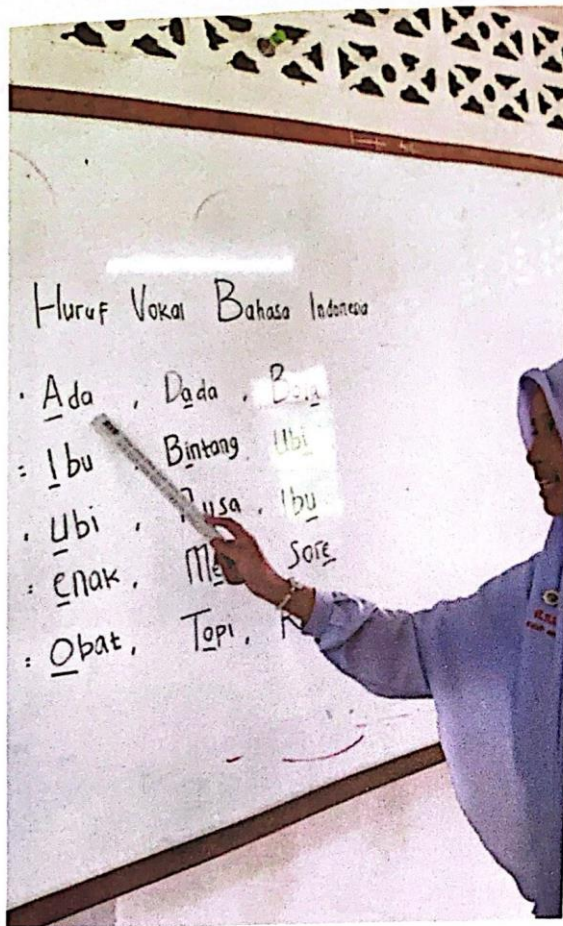 Huruf Vokal Bahasa Indonesia
· Ada , Dada , Bola
: Ibu , Bintang Ubi
· Ubi , Rusa , Ibu
: enak , Sore
: Obat , Topi ,